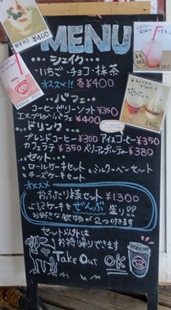 ¥400
MENU
シェイク
いちご・チョコ・抹茶
オススメ!! 各¥400
パフェ
コーヒーゼリーソフト ¥350
エスプレッソパフェ ¥400
ドリンク
ブレンドコーヒー ¥300 アイスコーヒー ¥350
カフェラテ ¥350 ¥380
セット
ロールケーキセット・ミルクレープセット
チーズケーキセット
オススメ
おふたり様セット ¥1300
ケーキをぜんぶ盛り!!
お好きな飲物が2つ付きます
セット以外は
お持ち帰りできます
Take Out OK